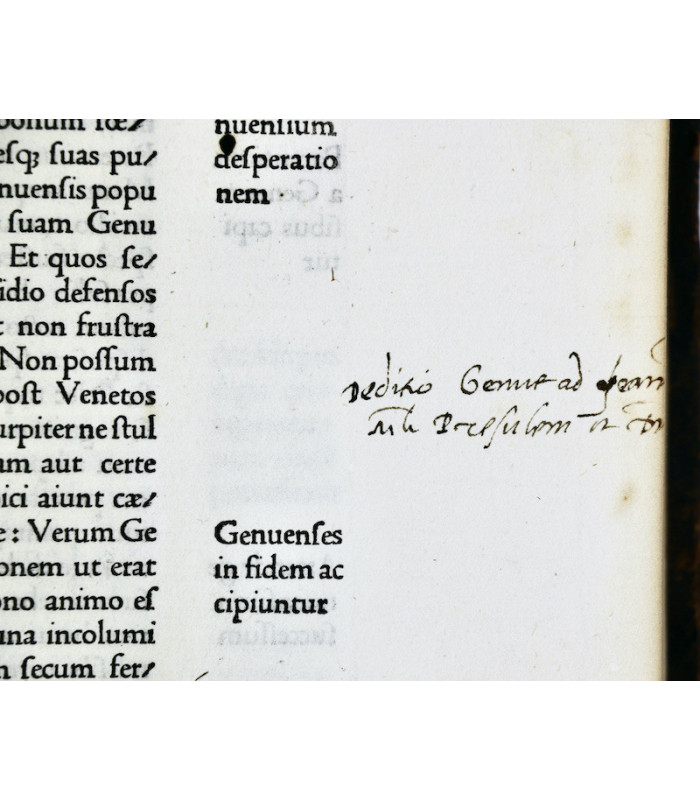 bonum fœ/
esqꝫ ſuas pu/
nuenſis popu
ſuam Genu
Et quos ſe/
ſidio defenſos
t non fruſtra
Non poſſum
poſt Venetos
urpiter ne ſtul
am aut certe
ici aiunt cæ/
e: Verum Ge
onem ut erat
ono animo eſ
una incolumi
n ſecum fer/
nuenſium
deſperatio
nem
Deditio Genue ad
Mli Preſulem et
Genuenſes
in fidem ac
cipiuntur